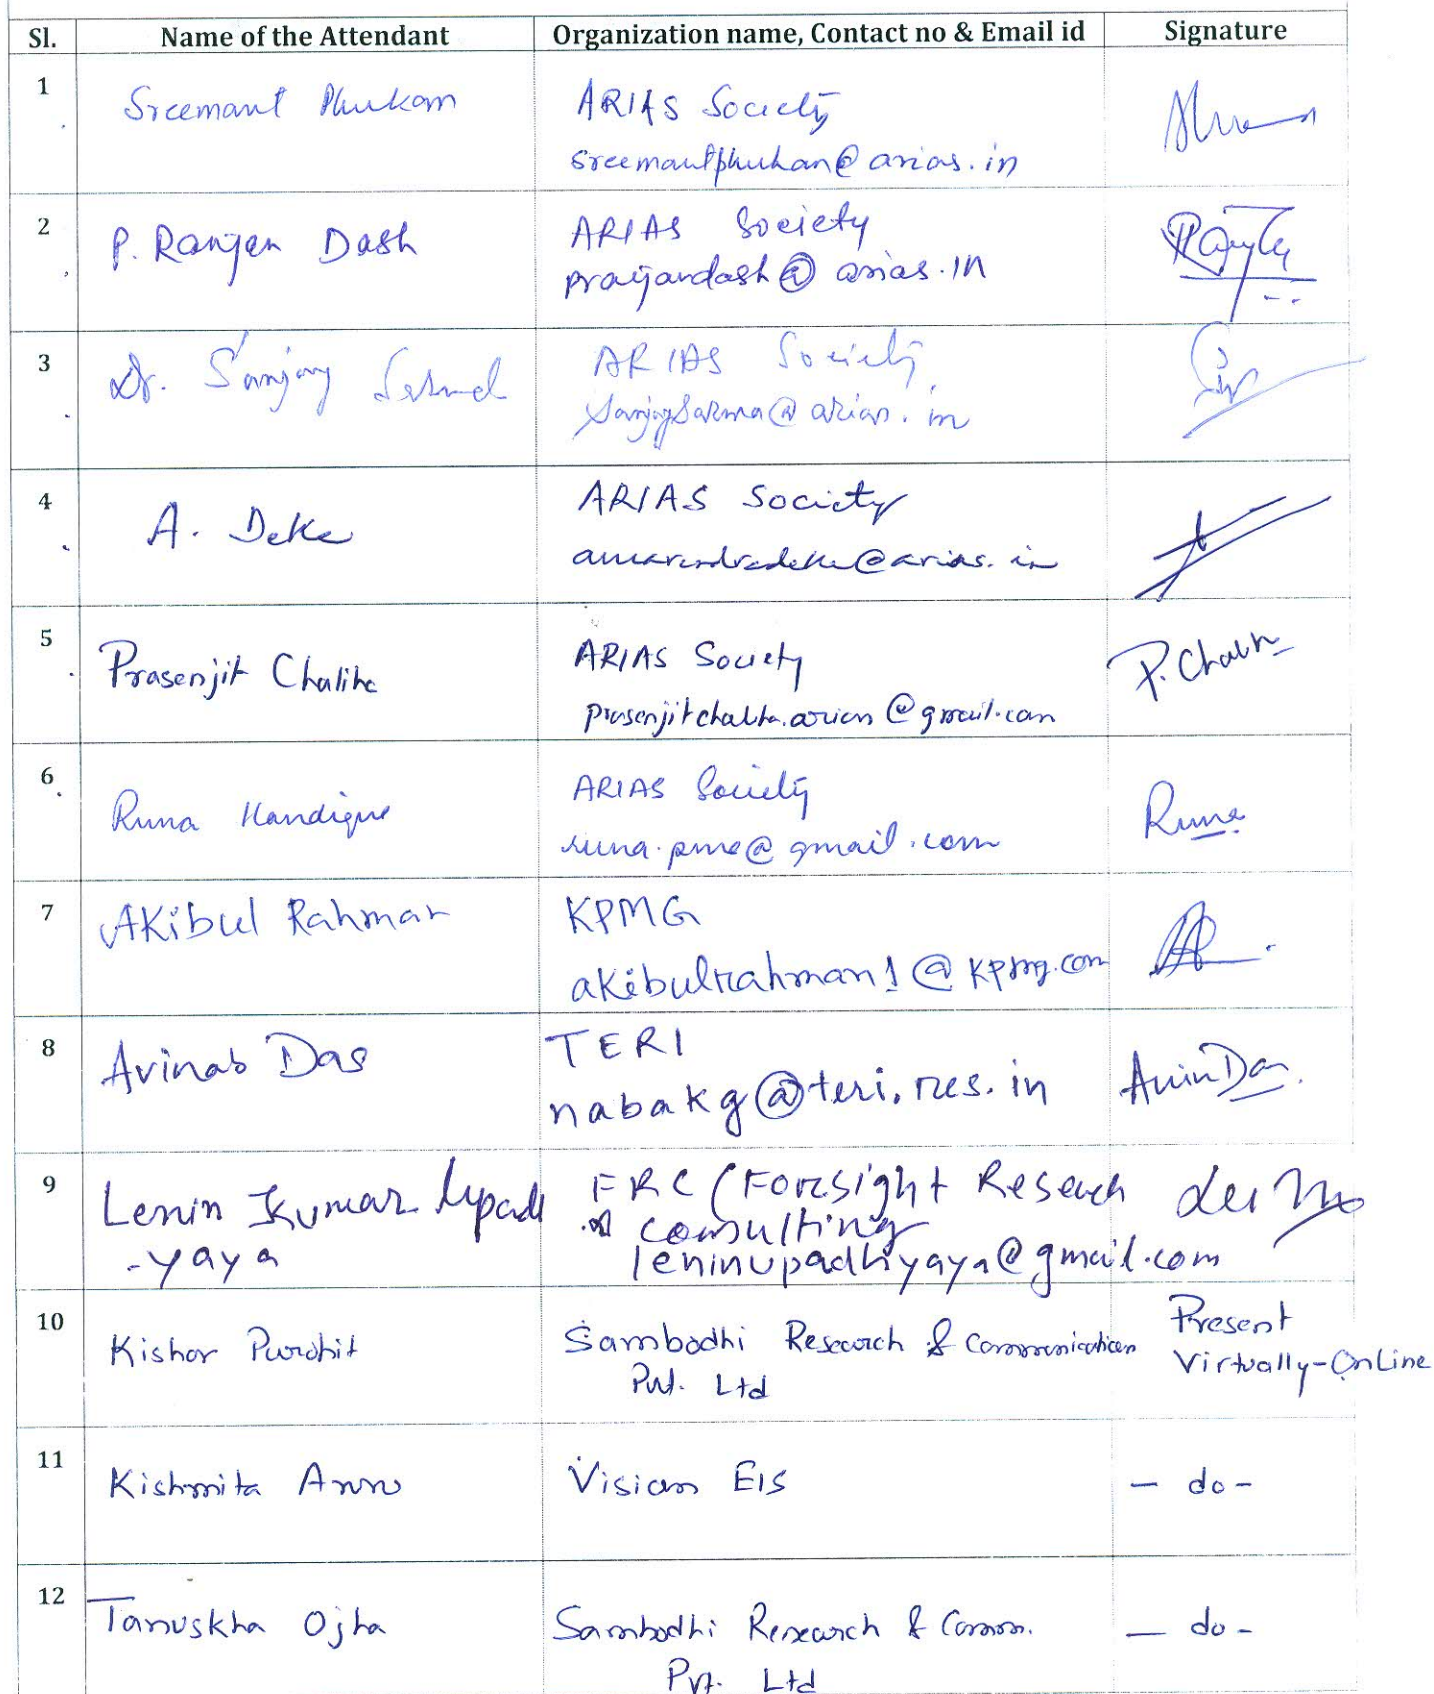 Sl. Name of the Attendant Organization name, Contact no & Email id Signature
1 Sreemant Phukan ARIAS Society
sreemantphukan@arias.in
2 P. Ranjan Dash ARIAS Society
pranjandash@arias.IN
3 Dr. Sanjay ARIAS Society
sanjaysarma@arias.in
4 A. Deka ARIAS Society
amarendradeka@arias.in
5 Prasenjit Chaliha ARIAS Society P. Chaliha
prasenjitchaliha.arias@gmail.com
6 Runa Handique ARIAS Society Runa
runa.pme@gmail.com
7 AKibul Rahman KPMG
akibulrahman1@kpmg.com
8 Avinab Das TERI
nabakg@teri.res.in
9 Lenin Kumar Upadh FRC (Foresight Reseach
-yaya & consulting
leninupadhyaya@gmail.com
10 Kishor Purohit Sambodhi Research & Communication Present
Pvt. Ltd Virtually-OnLine
11 Kishmita Vision EIS - do -
12 Tanuskha Ojha Sambodhi Research & Comm. - do -
Pvt. Ltd